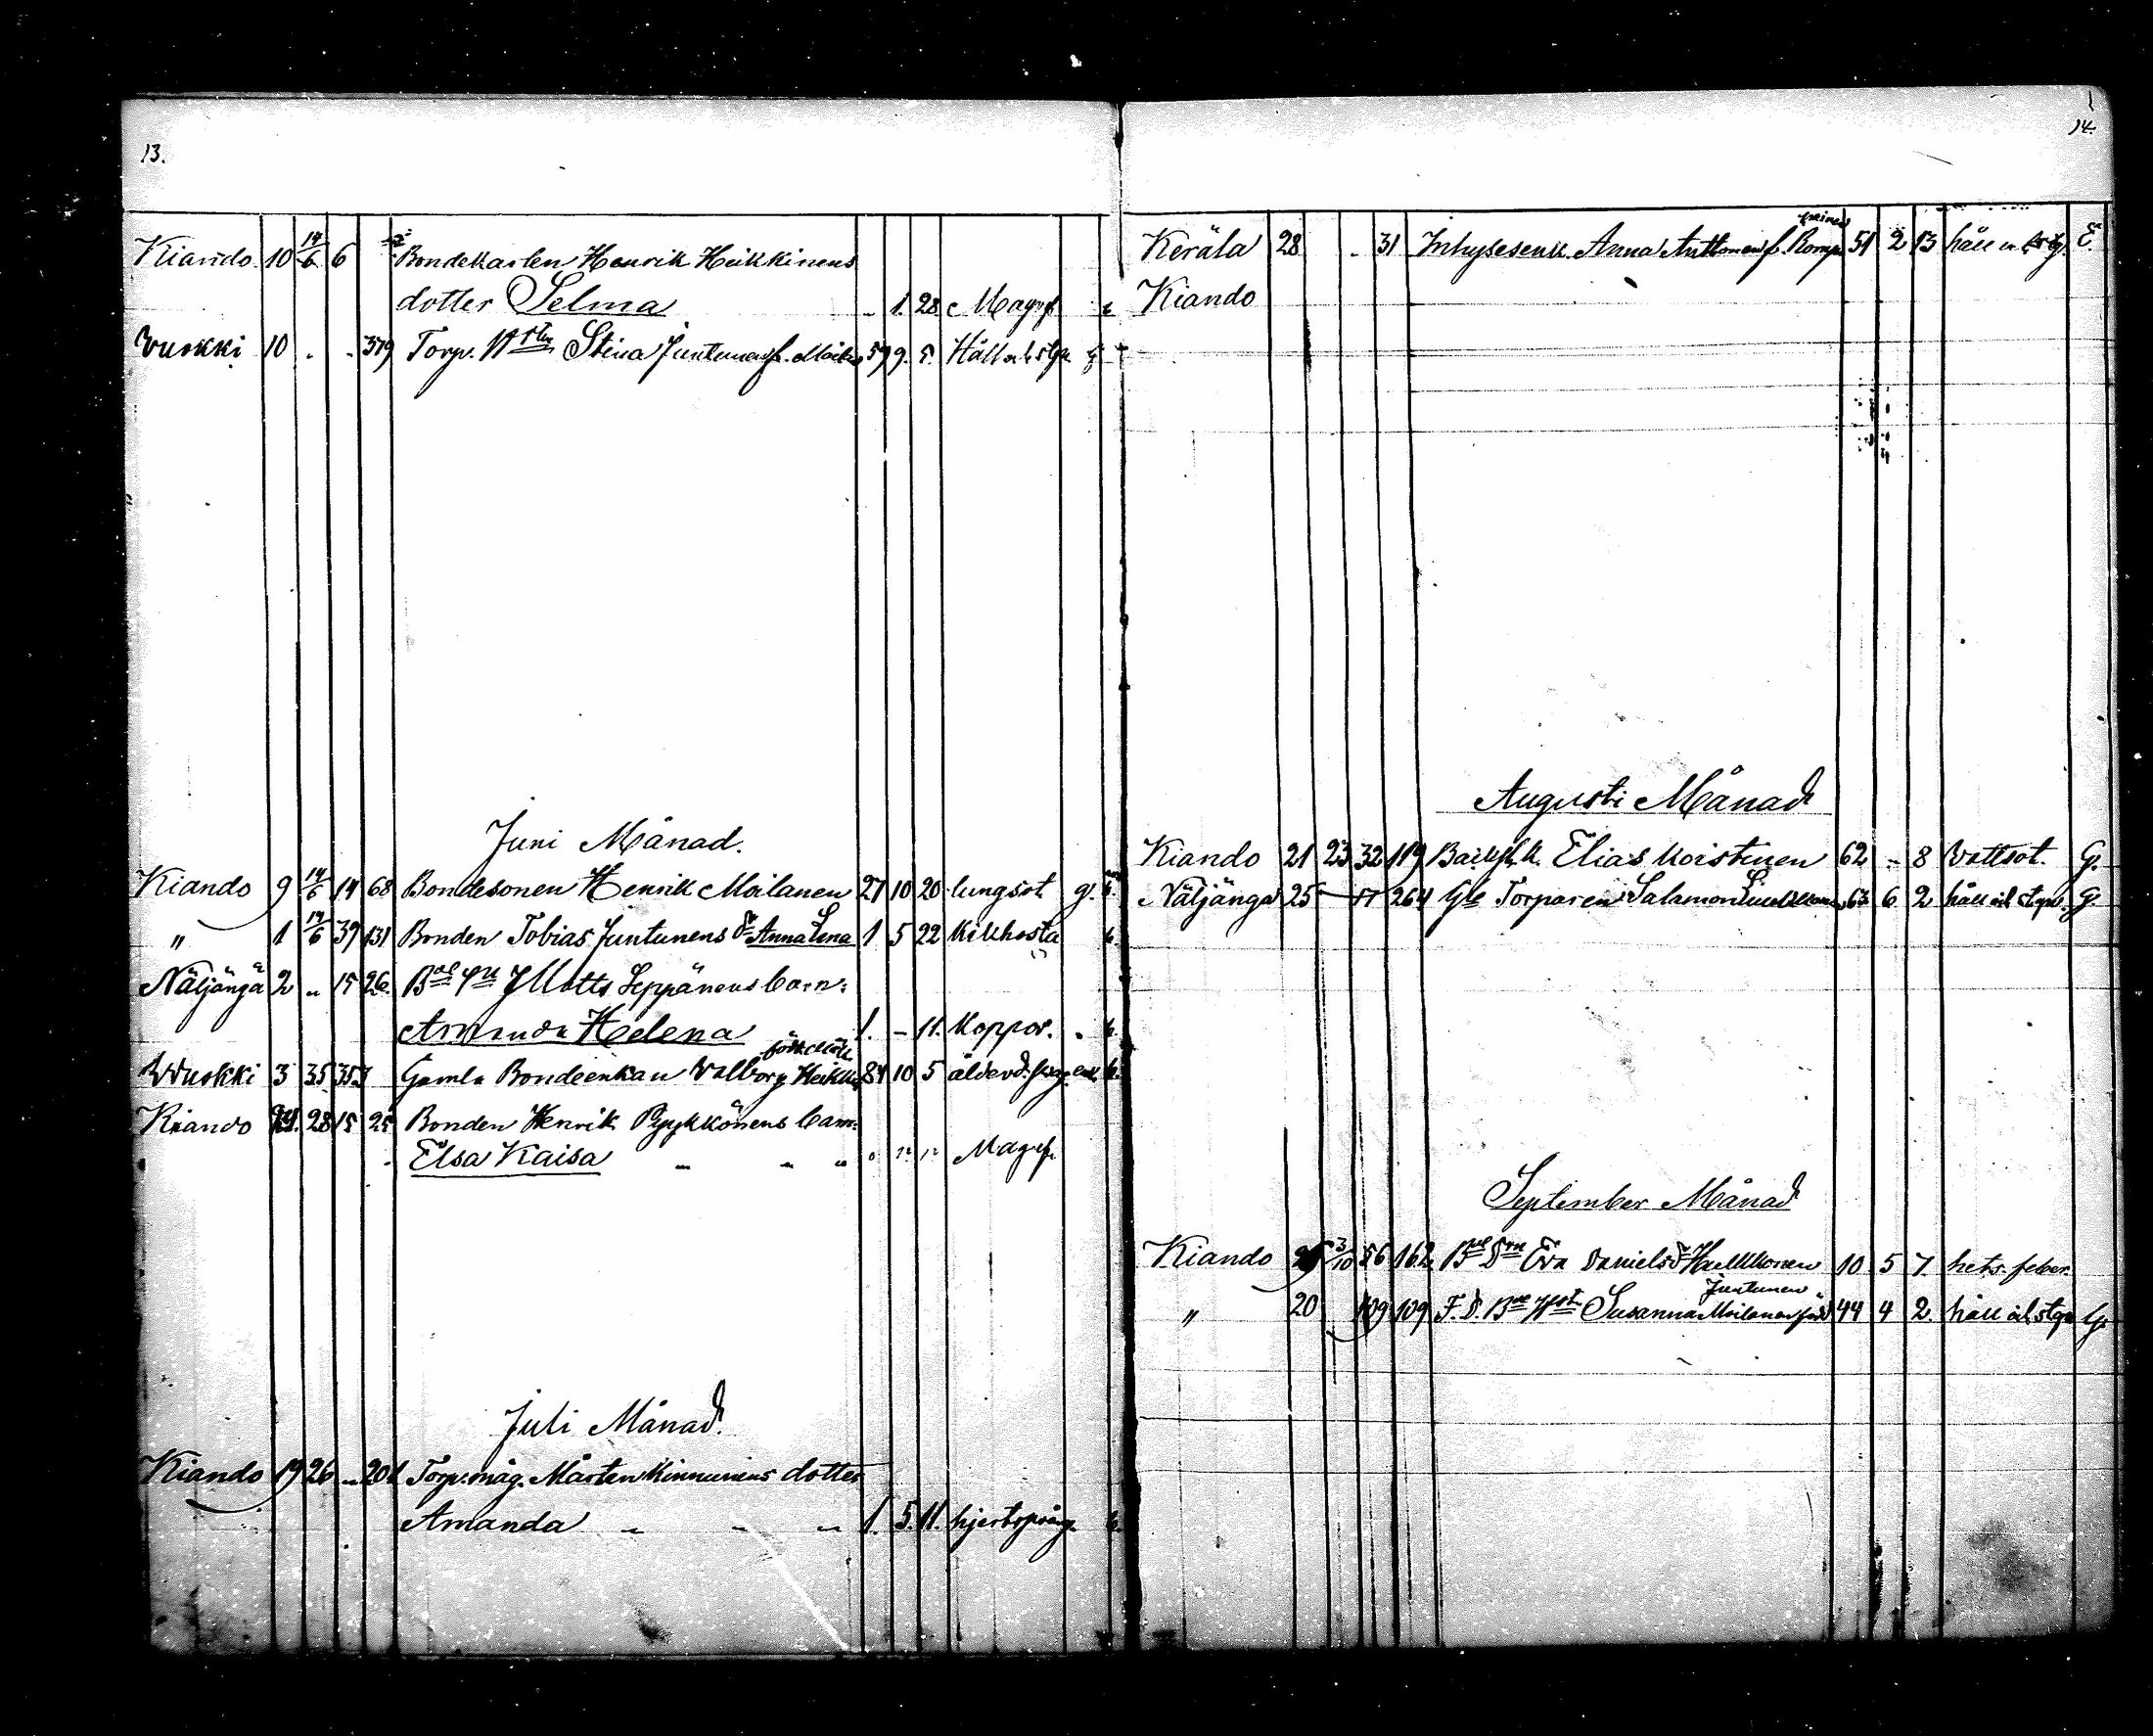 13.
Kiando 10 14/6 6 Bondekarlen Henrik Heikkinens
dotter Selma - 1. 28 Magrf
Wuokki 10 . . 379 Torp. Stina Juntunen f. 59 9. 5. Håll o. styn
Juni Månad.
Kiando 9 14/6 14 68 Bondesonen Henrik Moilanen 27 10 20 lungsot g.
" 1 14/6 39 131 Bonden Tobias Juntunens dr Anna Lena 1 5 22 Kikhosta
Näljängä 2 " 15 26. Matts Seppänens barn:
Amanda Helena 1. - 11. Koppor.
Wuokki 3 35 353 Gamla Bondeenkan Valborg Heikk. 84 10 5 ålderd. enk.
Kiando 28 15 25 Bonden Henrik Pyykkönens barn:
Elsa Kaisa " " " Magrf.
Juli Månad.
Kiando 19 26 - 201 Torp.måg. Mårten Kinnunens dotter
Amanda " " " 1. 5. 11. hjertsprång
14.
Keräla 28 . 31 Inhysesenk. Anna Anttonen f. Romp. 51 2 13 håll o. E.
Kiando
Augusti Månad
Kiando 21 23 32 119 Elias Koistinen 62 - 8 Vattsot. G.
Näljängä 25 - 17 264 Gle Torparen Salamon 63 6 2 håll och styn G.
September Månad
Kiando 3/10 56 162 Eva Danielsdr Haukkonen 10 5 7. hets. feber.
Juntunen
" 20 109 109 F. d. Susanna Moilanen född 44 4 2. håll och styn G.